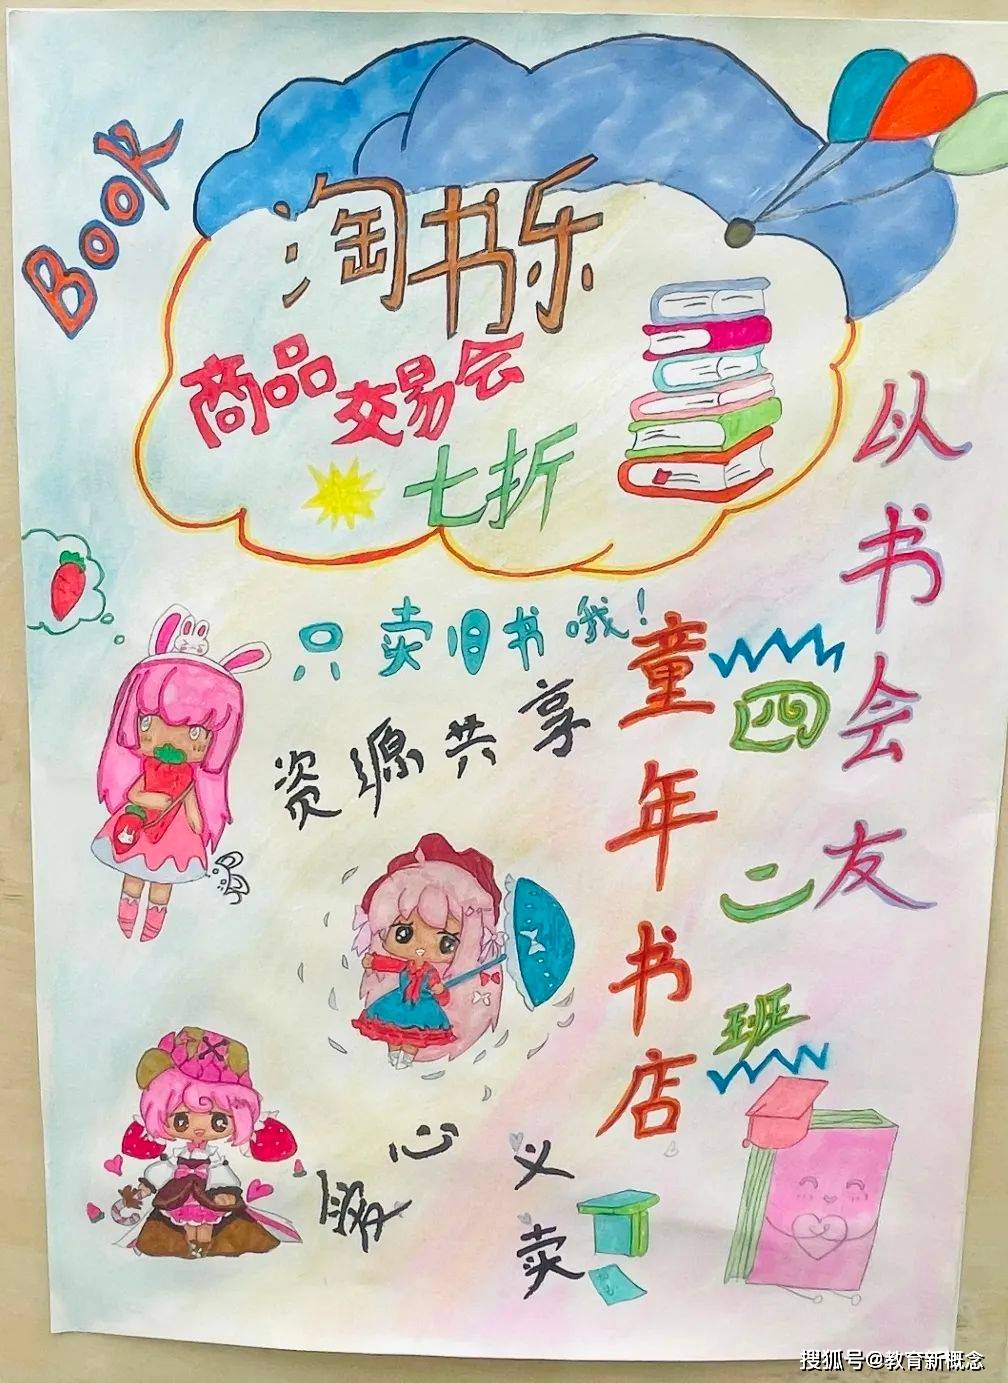 BOOK
淘书乐
商品交易会
七折
只卖旧书哦！
资源共享
童年书店
四二班
以书会友
爱心
义卖
搜狐号@教育新概念